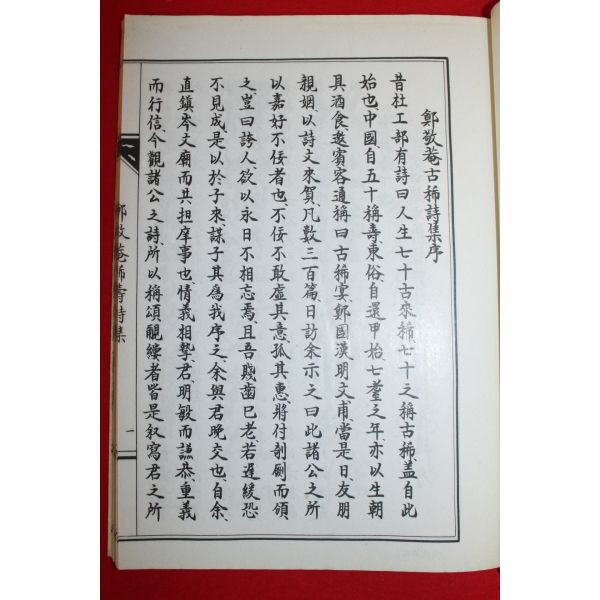 鄭敬菴古稀詩集序
昔杜工部有詩曰人生七十古來稀七十之稱古稀蓋自此
始也中國自五十稱壽東俗自還甲始七耋之年亦以生朝
具酒食邀賓客通稱曰古稀宴鄭國漢明文甫當是日友朋
親姻以詩文來賀凡數三百篇日訪余示之曰此諸公之所
以嘉好不佞者也不佞不敢虛其意孤其惠將付剞劂而頒
之豈曰誇人欲以永日不相忘焉且吾賤齒已老若遲緩恐
不見成是以於子來謀子其爲我序之余與君晩交也自余
直鎭岑文廟而共担庠事也情義相摯君明敏而謙恭重義
而行信今觀諸公之詩所以稱頌覼縷者皆是叙寫君之所
鄭敬菴稀壽詩集
一